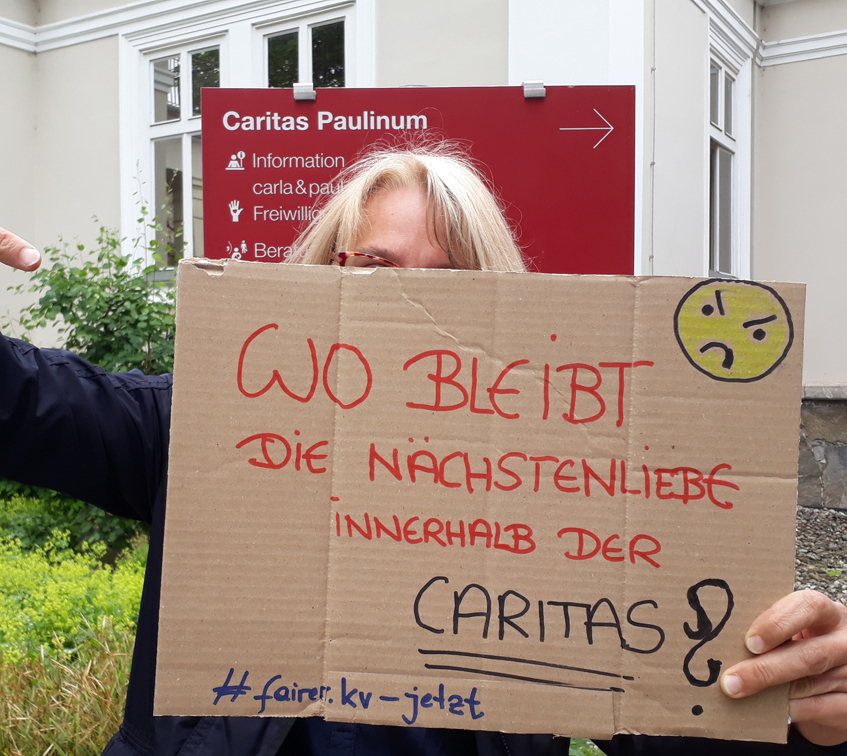 Caritas Paulinum
Information
carla & paul
WO BLEIBT
DIE NÄCHSTENLIEBE
INNERHALB DER
CARITAS?
#fairer.kv-jetzt